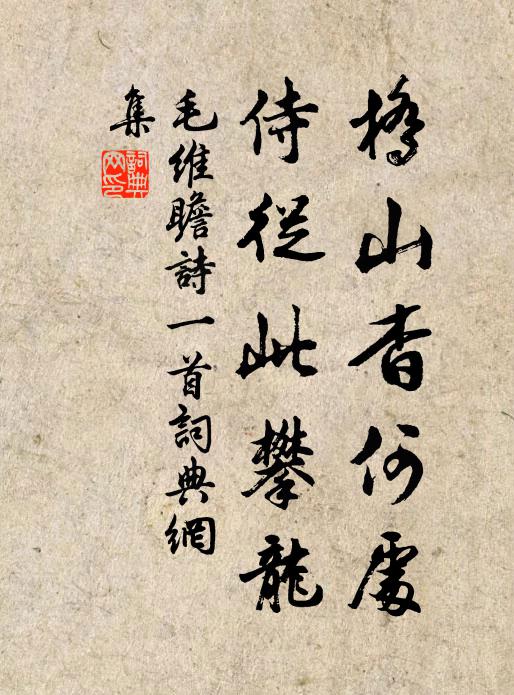 橋山杳何處
侍從此攀龍
毛維瞻詩一首詞典網
集
詞典
網印